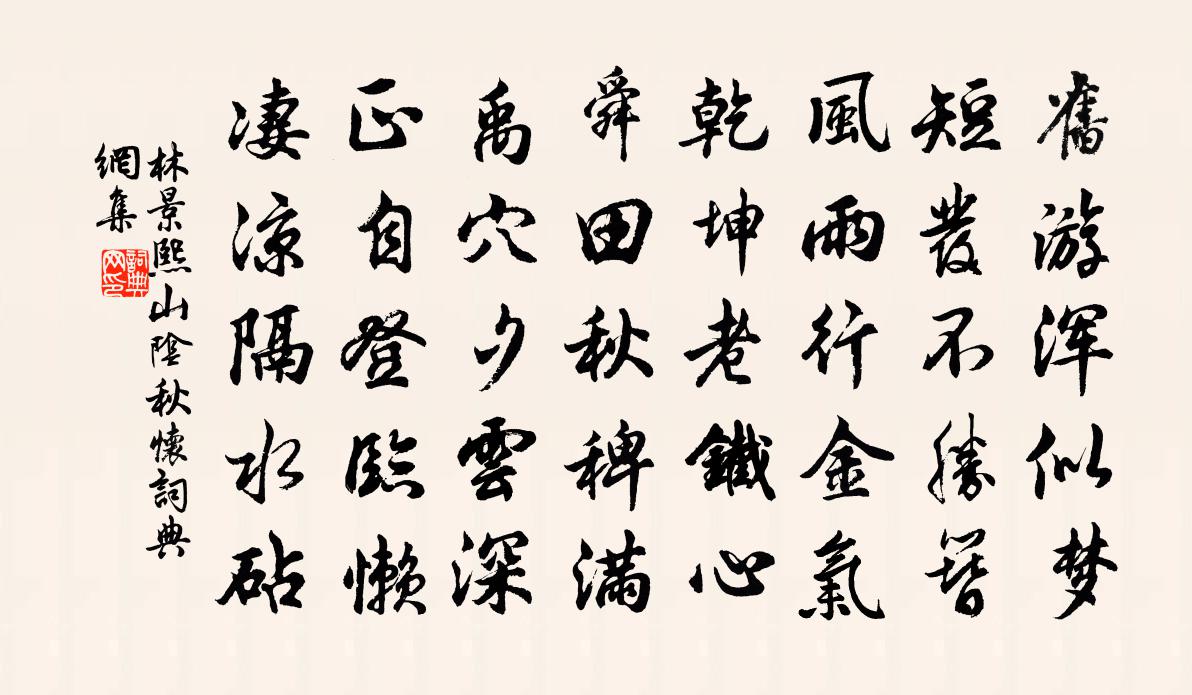 舊游浑似梦
短发不勝簪
風雨行金氣
乾坤老鐵心
舜田秋稗满
禹穴夕雲深
正自登臨懒
凄凉隔水砧
林景熙山陰秋懷詞典
網集
詞典
网印